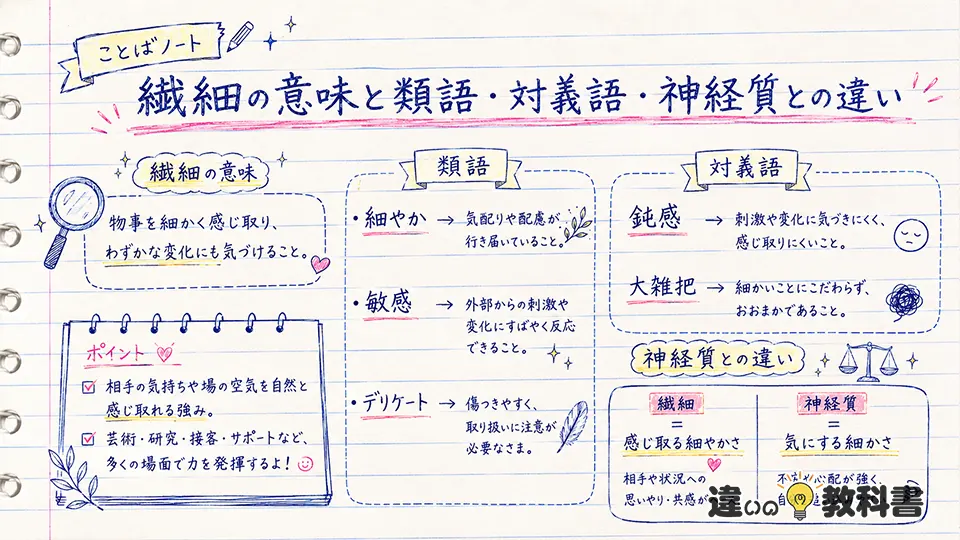 ことばノート
繊細の意味と類語・対義語・神経質との違い
繊細の意味
物事を細かく感じ取り、
わずかな変化にも気づけること。
ポイント
相手の気持ちや場の空気を自然と
感じ取れる強み。
芸術・研究・接客・サポートなど、
多くの場面で力を発揮するよ!
類語
・細やか → 気配りや配慮が
行き届いていること。
・敏感 → 外部からの刺激や
変化にすばやく反応
できること。
・デリケート → 傷つきやすく、
取り扱いに注意が
必要なさま。
対義語
鈍感 → 刺激や変化に気づきにくく、
感じ取りにくいこと。
大雑把 → 細かいことにこだわらず、
おおまかであること。
神経質との違い
繊細
=
感じ取る細やかさ
相手や状況への
思いやり・共感が
神経質
=
気にする細かさ
配が強く、
違いの教科書